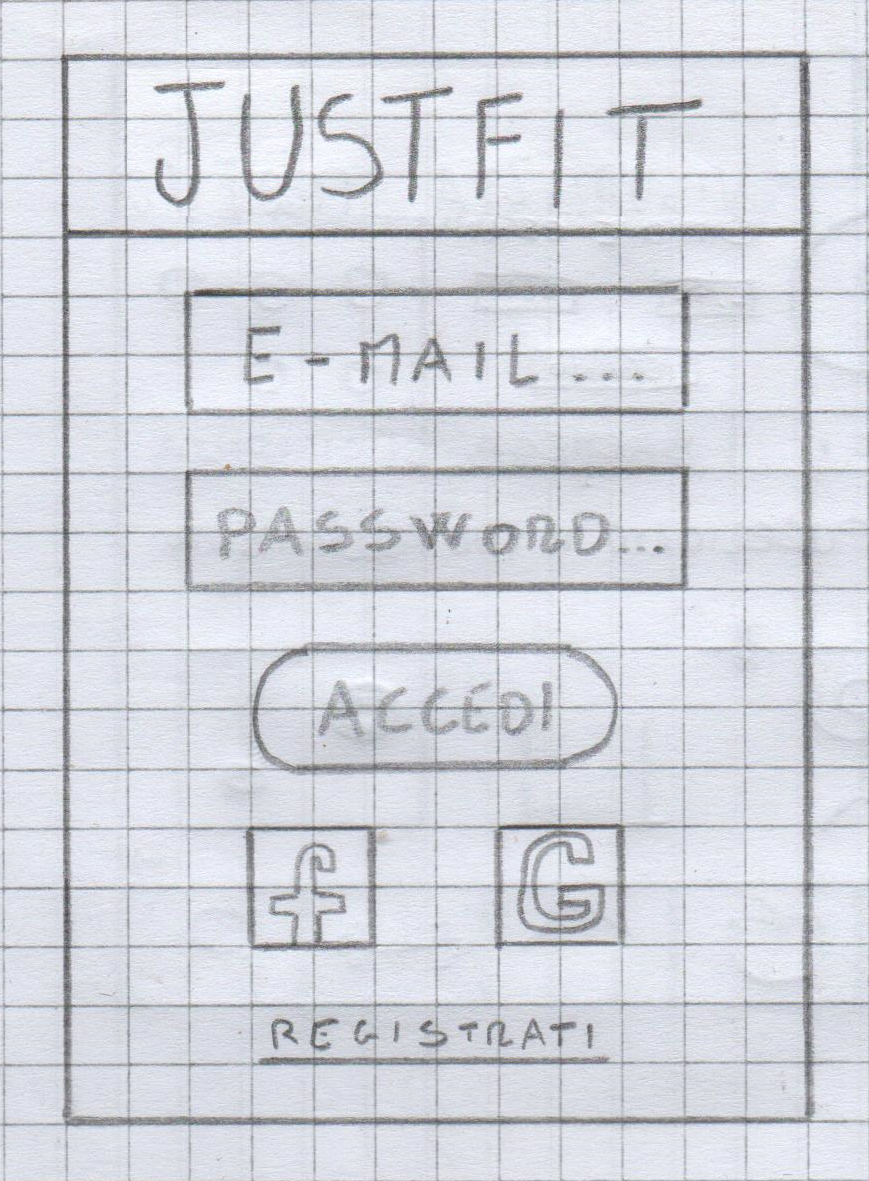 JUSTFIT
E-MAIL....
PASSWORD...
ACCEDI
f G
REGISTRATI